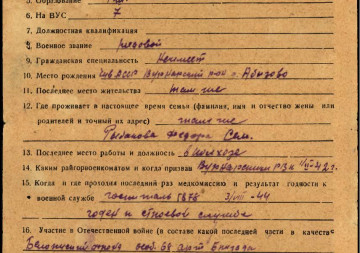 5. Образование
6. На ВУС 7
7. Должностная квалификация
8. Военное звание рядовой
9. Гражданская специальность
10. Место рождения Чув АССР Вурнарский р-он с. Абызово
11. Последнее место жительства там же
12. Где проживает в настоящее время семья (фамилия, имя и отчество жены или
родителей и точный их адрес) там же
Федора Сем.
13. Последнее место работы и должность в колхозе
14. Каким райгорвоенкоматом и когда призван Вурнарским РВК 42 г.
15. Когда и где проходил последний раз медкомиссию и результат годности к
военной службе госпиталь 44
годен к строевой службе
16. Участие в Отечественной войне (в составе какой последней части и в качестве
Белорусский 68 бригада